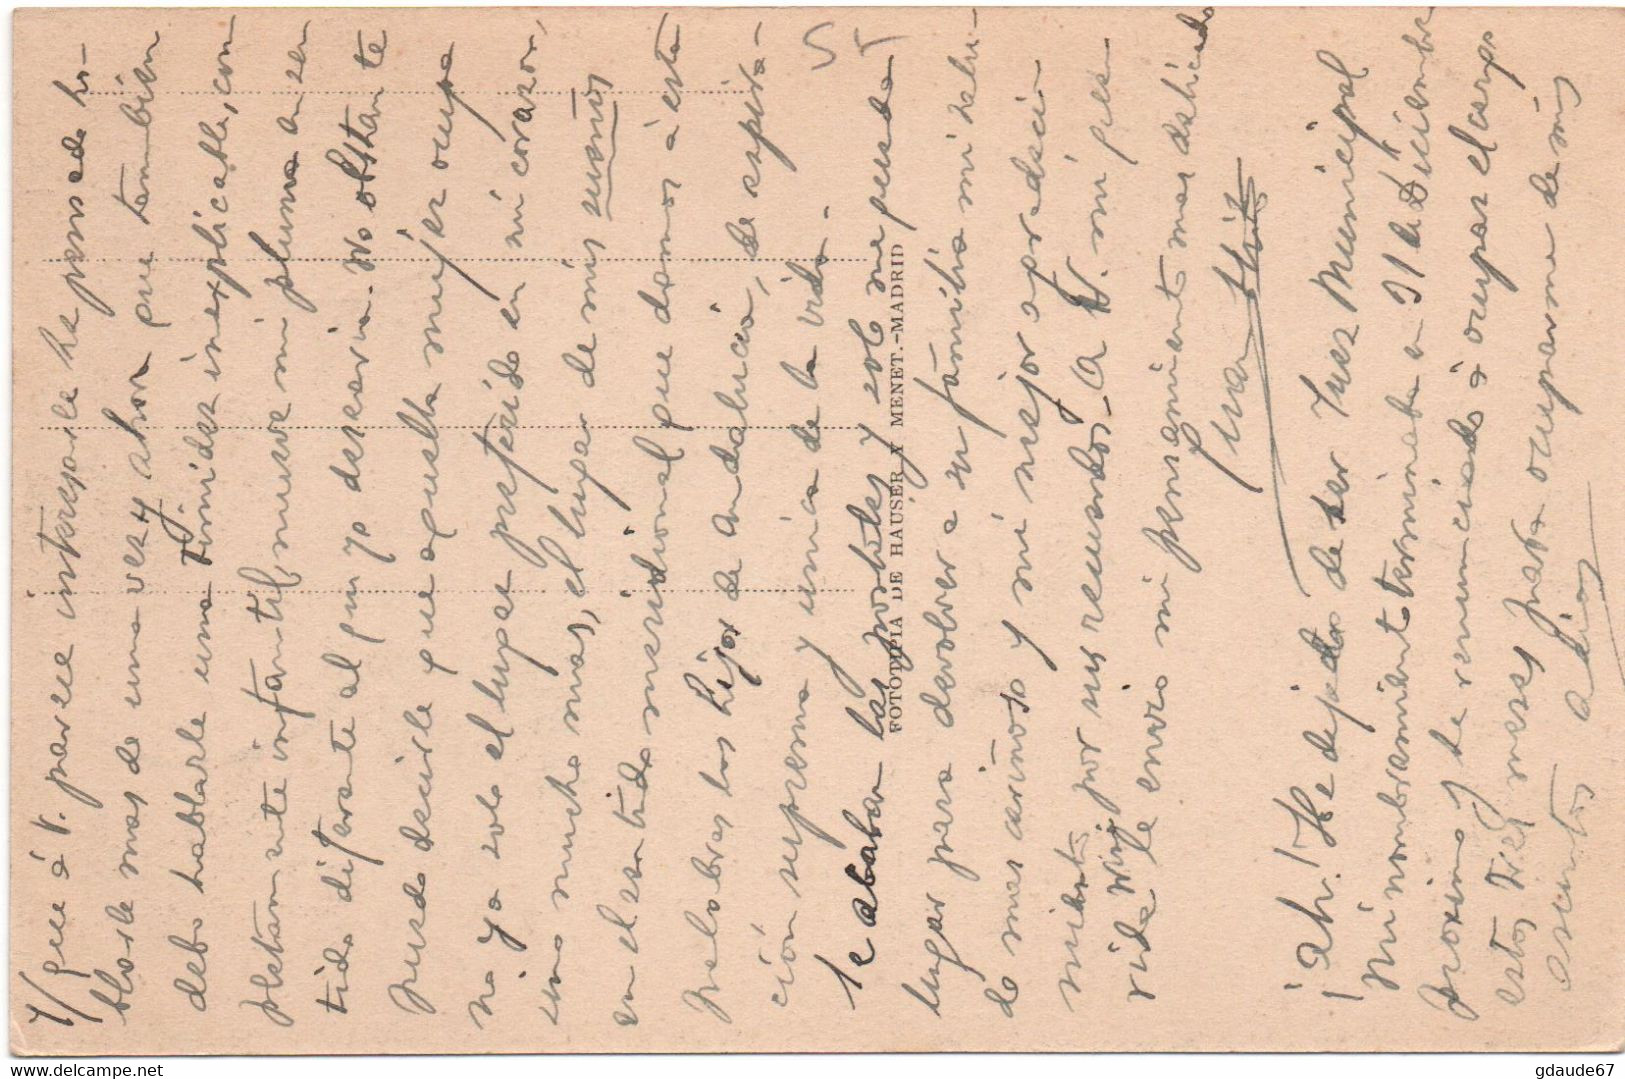 4/ que á V. parece interesarle he pensado ha-
blarle mas de una vez y ahora que tambien
debo hablarle una timidez inexplicable, com
pletamente infantil, mueve mi pluma en sen
tido diferente al que yo desearia. No obstante
puedo decirle que aquella mujer ocupa
no ya solo el lugar preferido en mi corazon,
sino mucho mas, el lugar de mis sueños
en el sentido meridional que damos á esta
palabra los hijos de Andalucia, de aspira-
ción suprema y unica de la vida.
Se acaban las postales y solo me queda
lugar para devolver a su familia mi salu-
do mas cariñoso y mi mejor agradeci-
miento por sus recuerdos. A V. mi que-
rida le envio mi pensamiento mas delicado
Juan
¡Ah! He dejado de ser Juez Municipal
Mi nombramiento terminaba en 31 de Diciembre
proximo y he renunciado á ocupar el cargo
estos tres meses para ocuparme de mis
asuntos Adios
FOTOTIPIA DE HAUSER Y MENET.-MADRID
delcampe.net
gdaude67